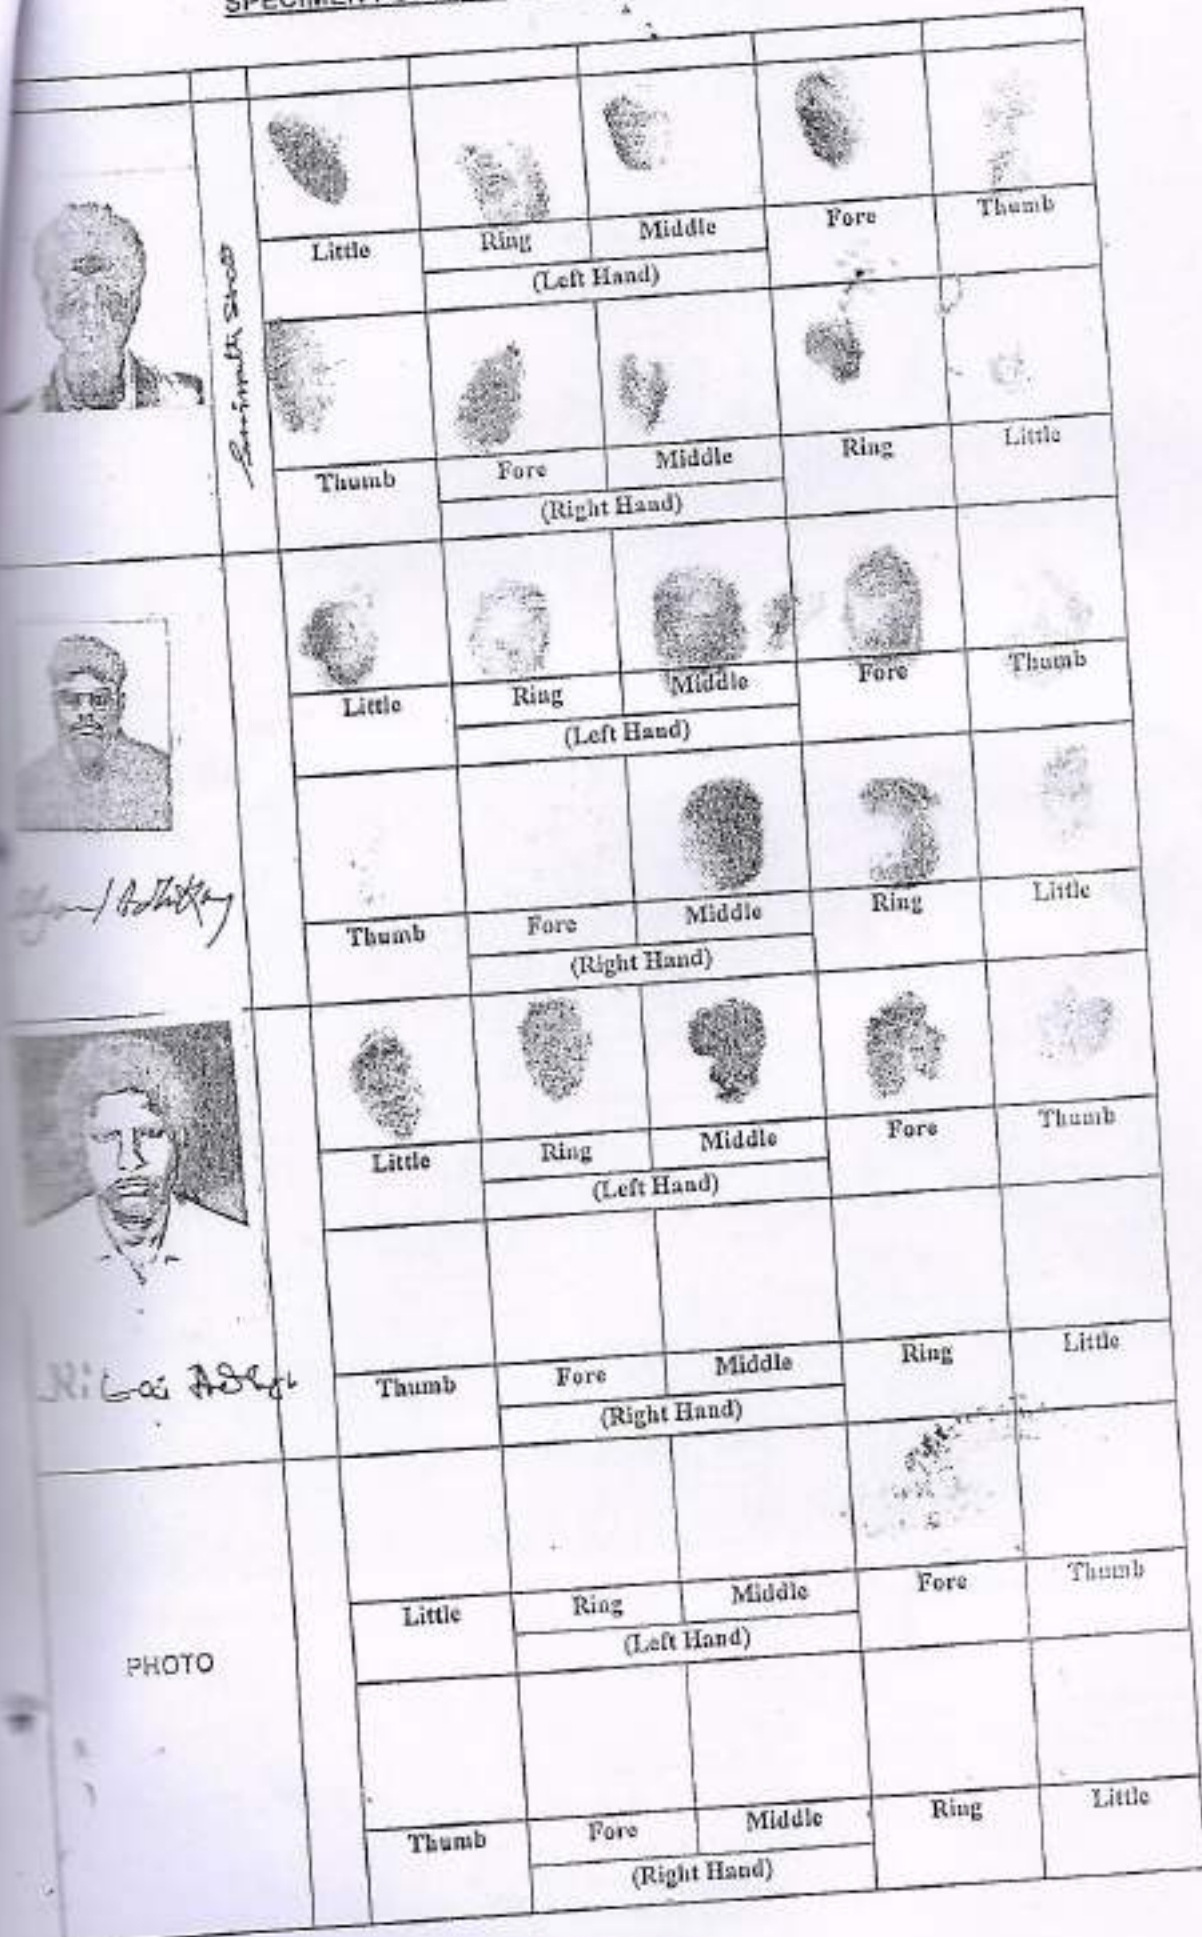 Little Ring Middle Fore Thumb
(Left Hand)
Thumb Fore Middle Ring Little
(Right Hand)
Little Ring Middle Fore Thumb
(Left Hand)
Thumb Fore Middle Ring Little
(Right Hand)
Little Ring Middle Fore Thumb
(Left Hand)
Thumb Fore Middle Ring Little
(Right Hand)
PHOTO
Little Ring Middle Fore Thumb
(Left Hand)
Thumb Fore Middle Ring Little
(Right Hand)